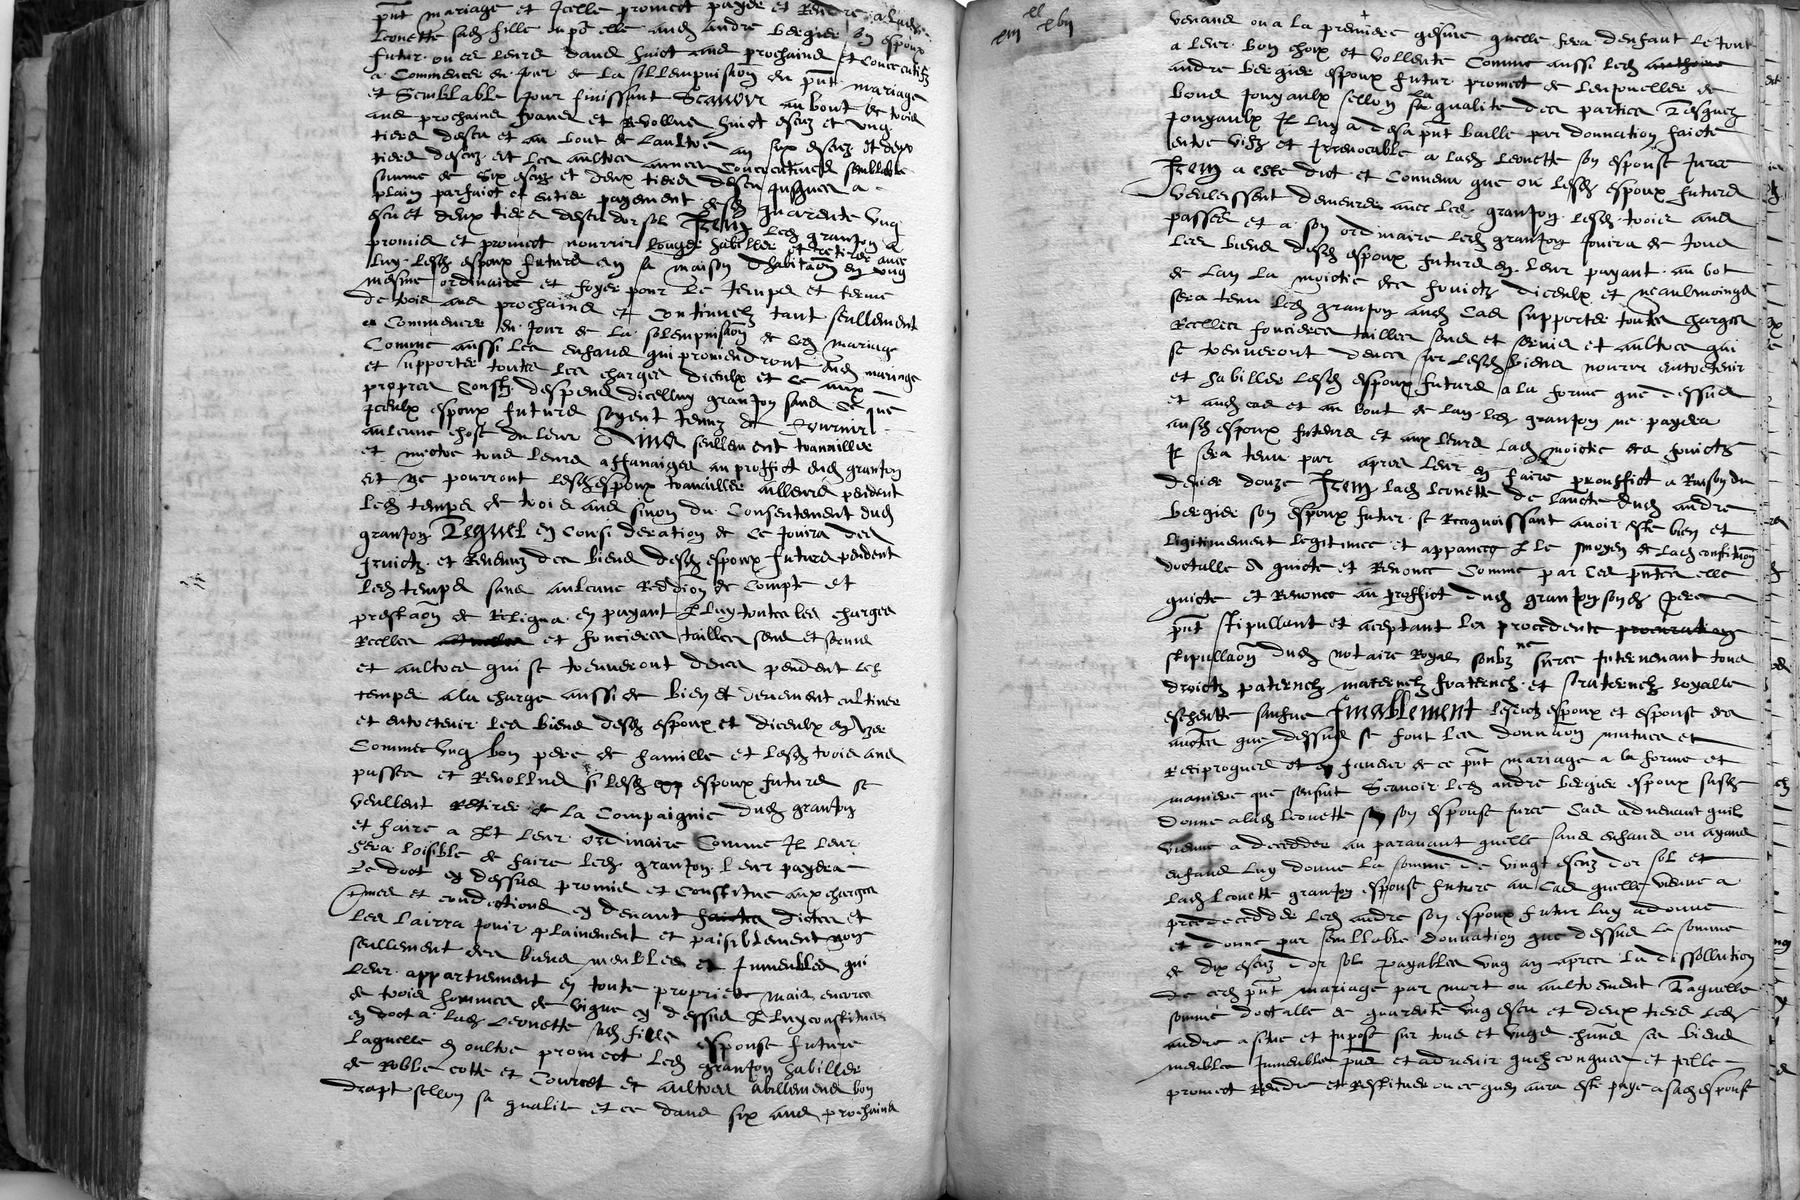 pnt mariage et Icelle promect payer et Rendre a lad
Leonette sad fille espouse dud andre bergier son espoux
futur ou es leurs dans huict ans prochains et consecutifz
a Commencer du Jour de la sollempnisation du pnt mariage
et Semblable Jour finissant Scavoir au bout de trois
ans prochains venans et Revolluz huict escuz et ung
tiers descu et au bout de laultre an six escuz et deux
tiers descuz et les aultres annees Consecutives semblable
somme de six escuz et deux tiers descu Jusques a
plain parfaict et entier payement desd quarente ung
escu et deux tiers descu dor sol Item led granjon a
promis et promect nourrir louger habiller et retirer avec
luy lesd espoux futurs en sa maison dhabitaon en ung
mesme ordinaire et foyer pour le temps et terme
de trois ans prochains et continuelz tant seullement
a Commencer du Jour de la solempnisaon de ced mariage
Comme aussi les enfans qui proviendront dud mariage
et supporter toutes les charges diceulx et ce aux
propres Coustz despens dicelluy granjon sans ce que
Iceulx espoux futurs soyent tenuz de fournir
aulcune chose du leur Ains seullement travailler
et mectre tous leurs affanaiges au proffict dud granjon
et ne pourront lesd espoux travailler ailleurs pendent
led temps de trois ans sinon du Consentement dud
granjon Lequel en consideration de ce Jouira des
fruictz et Revenuz des biens desd espoux futurs pendent
led temps sans aulcune Reddion de Compte et
prestaon de Reliqua en payant p luy toutes les charges
Reelles et foncieres tailles sens et servis
et aultres qui se trouveront deues pendent led
temps a la charge aussi de bien et deuement cultiver
et entretenir les biens desd espoux et diceulx en User
Comme Ung bon pere de famille et lesd trois ans
passes et Revolluz si lesd espoux futurs se
veullent Retirer de la Compaignie dud granjon
et faire a pt leur ordinaire Comme Il leur
sera loisible de faire led granjon leur payera
Le dot cy dessus promis et Constitue aux charges
Termes et conditions cy devant dictes et
Les lairra Jouir plainement et paisiblement non
seullement des biens meubles et Immeubles qui
leur appartiennent en toute propriete mais encores
de trois hommes de vigne cy dessus p luy constitues
en dot a lad Leonette sad fille espouse future
laquelle en oultre promect led granjon habiller
de Robbe cotte et Courcet et aultres abillemens bon
drapt sellon sa qualite et ce dans six ans prochains
venans ou a la premiere gesine quelle fera denfant le tout
a leur bon choix et vollente Comme aussi led
andre bergier espoux futur promect de lenjoueller de
bons Jouyaulx sellon la qualite des parties Desquelz
Jouyaulx Il luy a desa pnt baille par donnation faicte
entre vifz et Irrevocable a lad leonette son espouse future
Item a este dict et Convenu que ou lesd espoux futurs
veulessent demeurer avec led granjon lesd trois ans
passes et a son ordinaire led granjon Jouira de tous
les biens desd espoux futurs en leur payant au bot
de lan la moictie des fruictz diceulx et neaulmoings
sera tenu led granjon aud cas supporter toutes charges
Reelles foncieres tailles sens et servis et aultres qui
se trouveront deues sur lesd biens nourrir entretenir
et habiller lesd espoux futurs a la forme que dessus
et aud cas et au bout de lan led granjon ne payera
ausd espoux futurs et aux leurs lad moictie des fruictz
Il sera tenu par apres leur en faire prouffict a Raison du
denier douze Item lad leonette de lauctte dud andre
bergier son espoux futur se Recognoissant avoir este bien et
legitimement legitimee et appanee p le moyen de lad constitution
doctalle a quicte et Renonce Comme par ces pntes elle
quicte et Renonce au proffict dud granjon sond pere
pnt stipullant et aceptant les precedente
stipullaon dud notaire Royal soubzne sieree Intervenant tous
droictz paternelz maternelz fraternelz et sraternelz loyalle
escheutte saufve finablement lesdictz espoux et espouse des
auctes que dessus se font les donnaon mutues et
Reciproques et en faveur de ce pnt mariage a la forme et
maniere que sensuit Scavoir led andre bergier espoux susd
donne a lad leonette son espouse future Cas advenant quil
vienne a decedder au paravant quelle sans enfans ou ayans
enfans luy donne la somme de vingt escuz dor sol et
lad leonette granjon espouse future au Cas quelle vienne a
predecedder led andre son espoux futur luy a donne
et donne par semblable donnation que dessus la somme
de dix escuz dor sol payables ung an apres la dissollution
de ced pnt mariage par mort ou aultrement Laquelle
somme doctalle de quarente ung escu et deux tiers led
andre assitue et Impose sur tous et ungs chuns ses biens
meubles Immeubles pns et advenir quelzconques et Icelle
promect Rendre et Restituer ou ce quen aura este paye a sad espouse